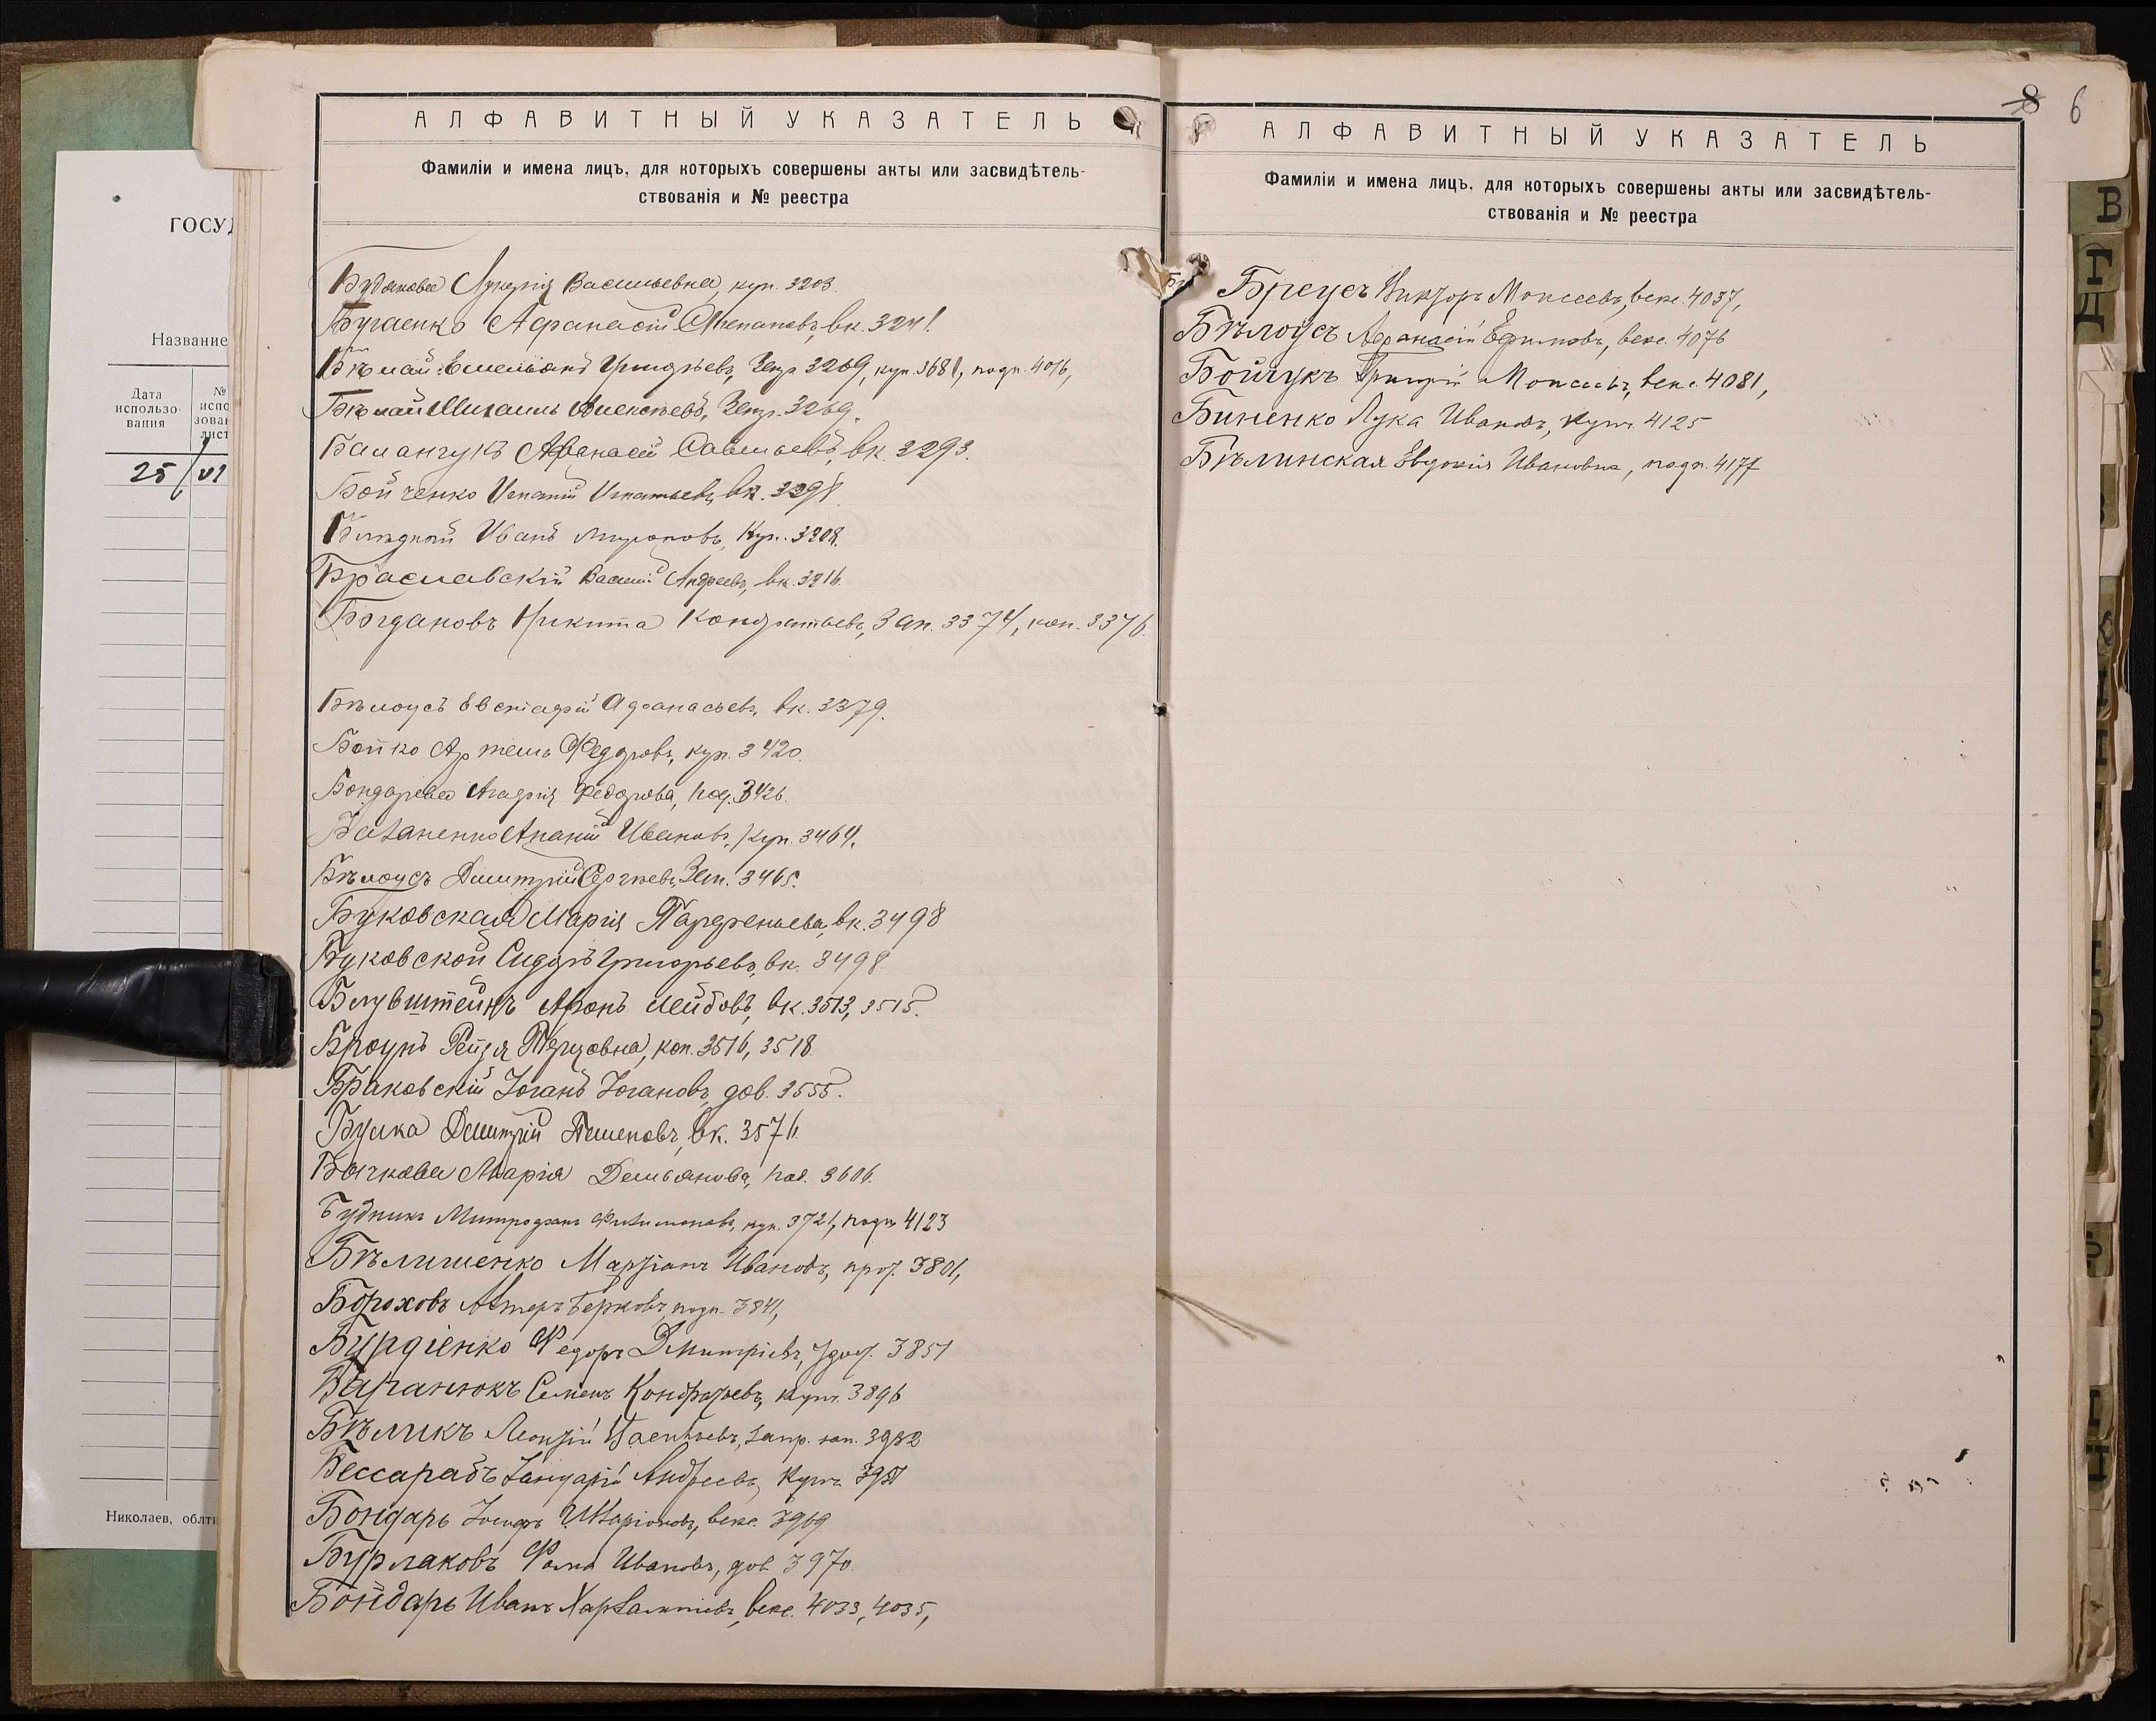 ГОСУД
Название
Дата использо- вания
№ испо зован лист
25/VI
Николаев, облти
АЛФАВИТНЫЙ УКАЗАТЕЛЬ
Фамиліи и имена лицъ, для которыхъ совершены акты или засвидѣтель-
ствованія и № реестра
Будакова Лукерія Васильевна, куп. 3203.
Бугаенко Афанасій Степановъ, вк. 3241.
Бѣлай Емельянъ Григорьевъ, 3269, куп. 3681, подп. 4016,
Бѣлай Михаилъ Алексѣевъ, 3269.
Баланчукъ Афанасій Савельевъ, вк. 3293.
Бойченко Игнатій Игнатьевъ, вк. 3298.
Блѣдной Иванъ Мироновъ, Куп. 3308.
Браславскій Василій Андреевъ, вк. 3316.
Богдановъ Никита Кондратьевъ, Зап. 3374, коп. 3376.
Бѣлоусъ Евстафій Афанасьевъ, вк. 3379.
Бойко Артемъ Федоровъ, куп. 3420.
Бондарева Агафія Федорова, под. 3426.
Базаненко Ананій Ивановъ, Куп. 3464.
Бѣлоусъ Дмитрій Сергѣевъ, 3465.
Буковская Марія Парфеньева, вк. 3498
Буковской Сидоръ Григорьевъ, вк. 3498.
Блувштейнъ Аронъ Лейбовъ, вк. 3513, 3515.
Броунъ Рейзя Перцовна, коп. 3516, 3518.
Браковскій Іоганъ Іогановъ, дов. 3555.
Булка Дмитрій вк. 3576.
Бычкова Марія Демьянова, под. 3606.
Будникъ Митрофанъ Филимоновъ, куп. 3721, подп. 4123
Бѣлишенко Мартіанъ Ивановъ, прот. 3801,
Бороховъ Берковъ, подп. 3841,
Бурдіенко Федоръ Дмитріевъ, удост. 3851
Баранюкъ Семенъ Кондратьевъ, купч. 3896
Бѣликъ Леонтій запр. зап. 3932
Бессарабъ Андреевъ, Купч. 3951
Бондарь Іосифъ Иларіоновъ, векс. 3969
Бурлаковъ Фома Ивановъ, дов. 3970.
Бондарь Иванъ Харлампіевъ, векс. 4033, 4035,
8 6
АЛФАВИТНЫЙ УКАЗАТЕЛЬ
Фамиліи и имена лицъ, для которыхъ совершены акты или засвидѣтель-
ствованія и № реестра
Бреусъ Викторъ Моисеевъ, векс. 4037,
Бѣлоусъ Афанасій Ефимовъ, векс. 4076
Бойчукъ Григорій Моисеевъ, векс. 4081,
Биненко Лука Ивановъ, Купч. 4125
Бѣлинская Евдокія Ивановна, подп. 4177
В
Г
Д